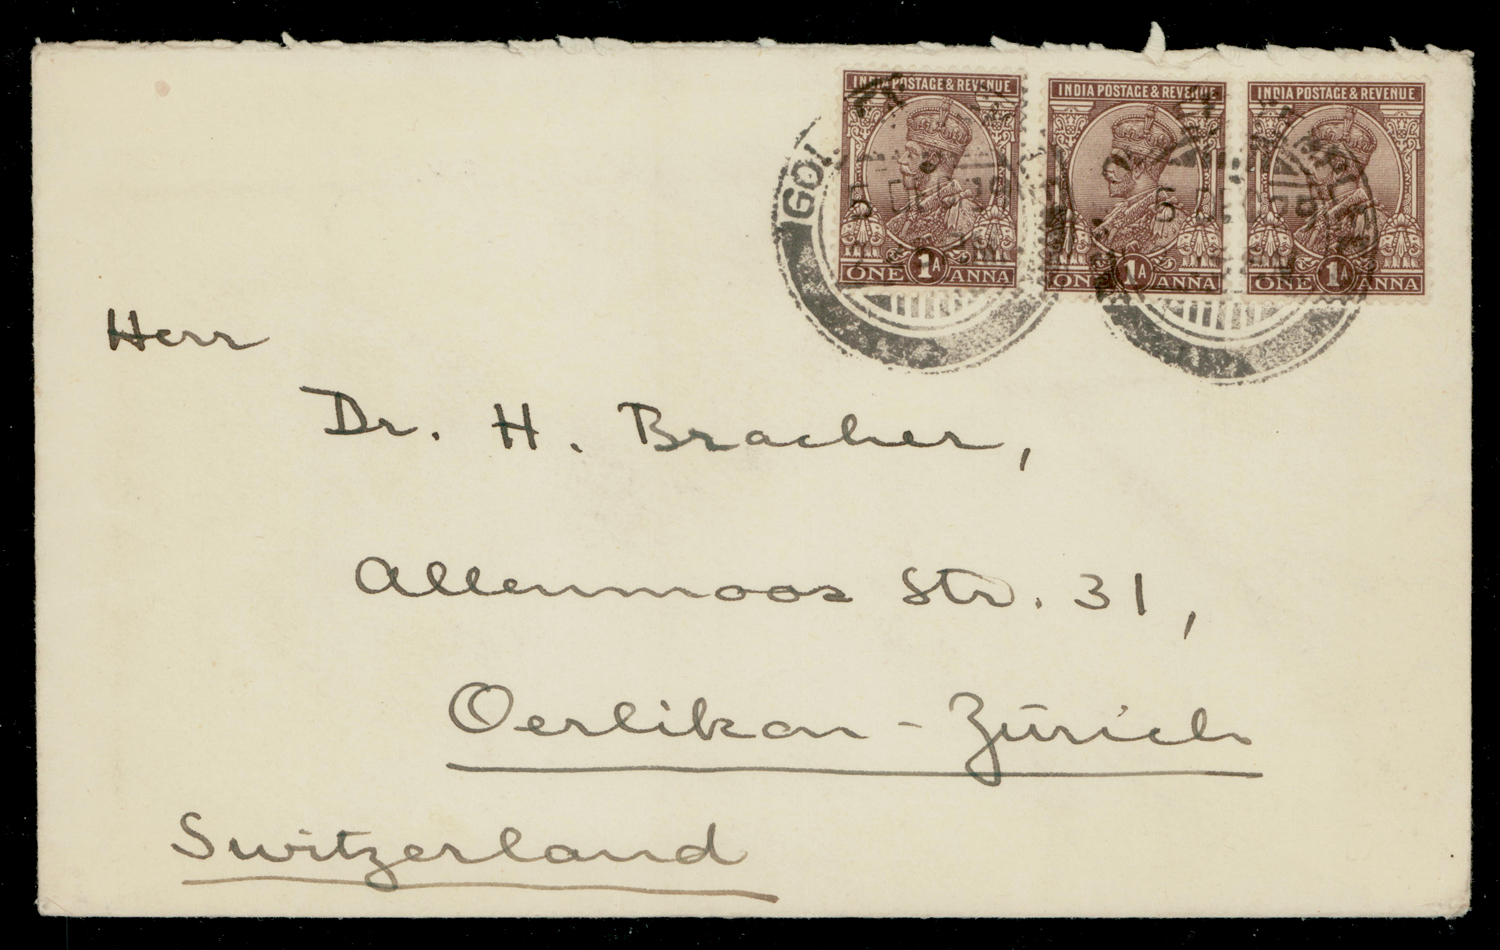 INDIA POSTAGE & REVENUE
ONE 1A ANNA
INDIA POSTAGE & REVENUE
ONE 1A ANNA
INDIA POSTAGE & REVENUE
ONE 1A ANNA
5 DEC
5 DEC
Herr
Dr. H. Bracher,
Allenmoos Str. 31,
Oerlikon - Zürich
Switzerland